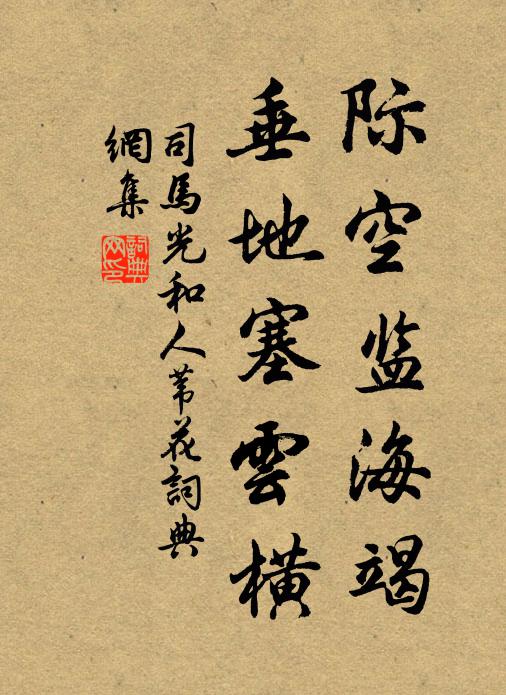 际空监海竭
垂地塞雲橫
司馬光和人葦花詞典
網集
詞典
网印